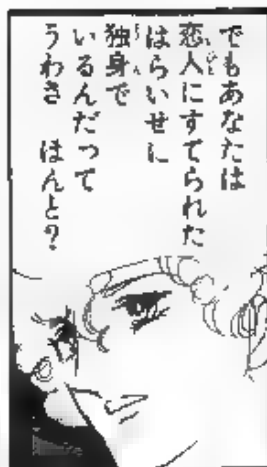 でもあなたは
恋人にすてられた
はらいせに
独身で
いるんだって
うわさ　ほんと？